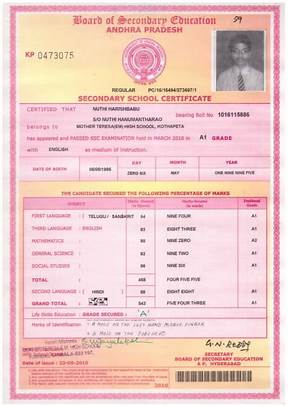 Board of Secondary Education
ANDHRA PRADESH
KP 0473075
REGULAR PC/16/15494/373697/1
SECONDARY SCHOOL CERTIFICATE
CERTIFIED THAT NUTHI HARISHBABU
S/O NUTHI HANUMANTHARAO bearing Roll No 1016115886
belongs to MOTHER TERESA(EM) HIGH SCHOOL, KOTHAPETA
has appeared and PASSED SSC EXAMINATION held in MARCH 2010 in A1 GRADE
with ENGLISH as medium of instruction.
DATE OF BIRTH ZERO SIX MAY ONE NINE NINE FIVE
THE CANDIDATE SECURED THE FOLLOWING PERCENTAGE OF MARKS
SUBJECT
FIRST LANGUAGE TELUGU / SANSKRIT 94 NINE FOUR A1
THIRD LANGUAGE ENGLISH 83 EIGHT THREE A1
MATHEMATICS 90 NINE ZERO A2
GENERAL SCIENCE 92 NINE TWO A1
SOCIAL STUDIES 96 NINE SIX A1
TOTAL 455 FOUR FIVE FIVE
SECOND LANGUAGE HINDI 88 EIGHT EIGHT A1
GRAND TOTAL 543 FIVE FOUR THREE A1
Life Skills Education : GRADE SECURED 'A'
Marks of Identification
A MOLE ON THE LEFT HAND MIDDLE FINGER
A MOLE ON THE
Date of issue : 22-05-2010
G.N. REDDY
SECRETARY
BOARD OF SECONDARY EDUCATION
A P. HYDERABAD
2010